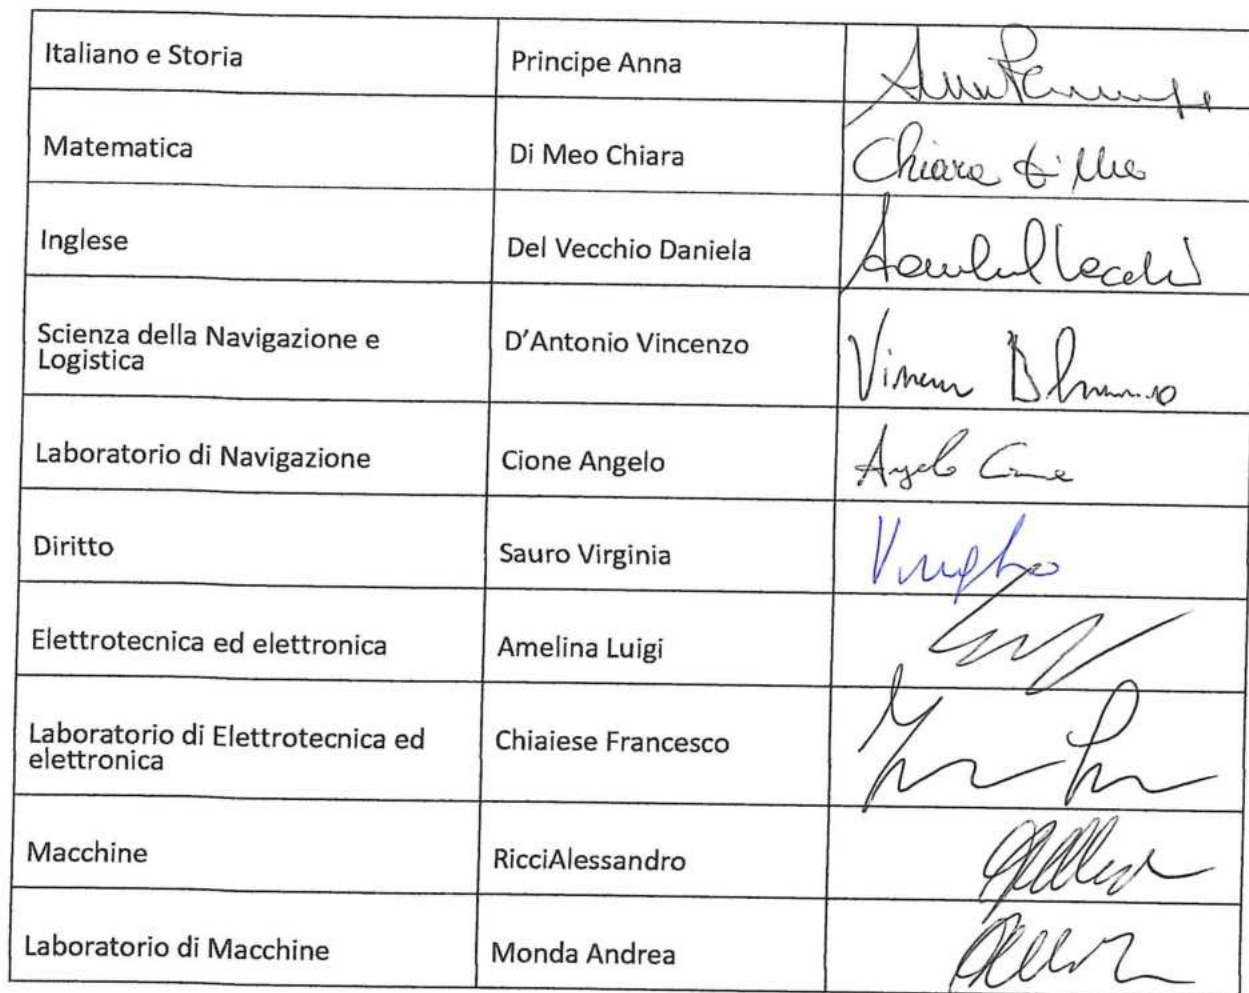 Italiano e Storia
Principe Anna
Matematica
Di Meo Chiara
Chiara Di Meo
Inglese
Del Vecchio Daniela
Scienza della Navigazione e
Logistica
D'Antonio Vincenzo
Laboratorio di Navigazione
Cione Angelo
Angelo Cione
Diritto
Sauro Virginia
Elettrotecnica ed elettronica
Amelina Luigi
Laboratorio di Elettrotecnica ed
elettronica
Chiaiese Francesco
Macchine
RicciAlessandro
Laboratorio di Macchine
Monda Andrea